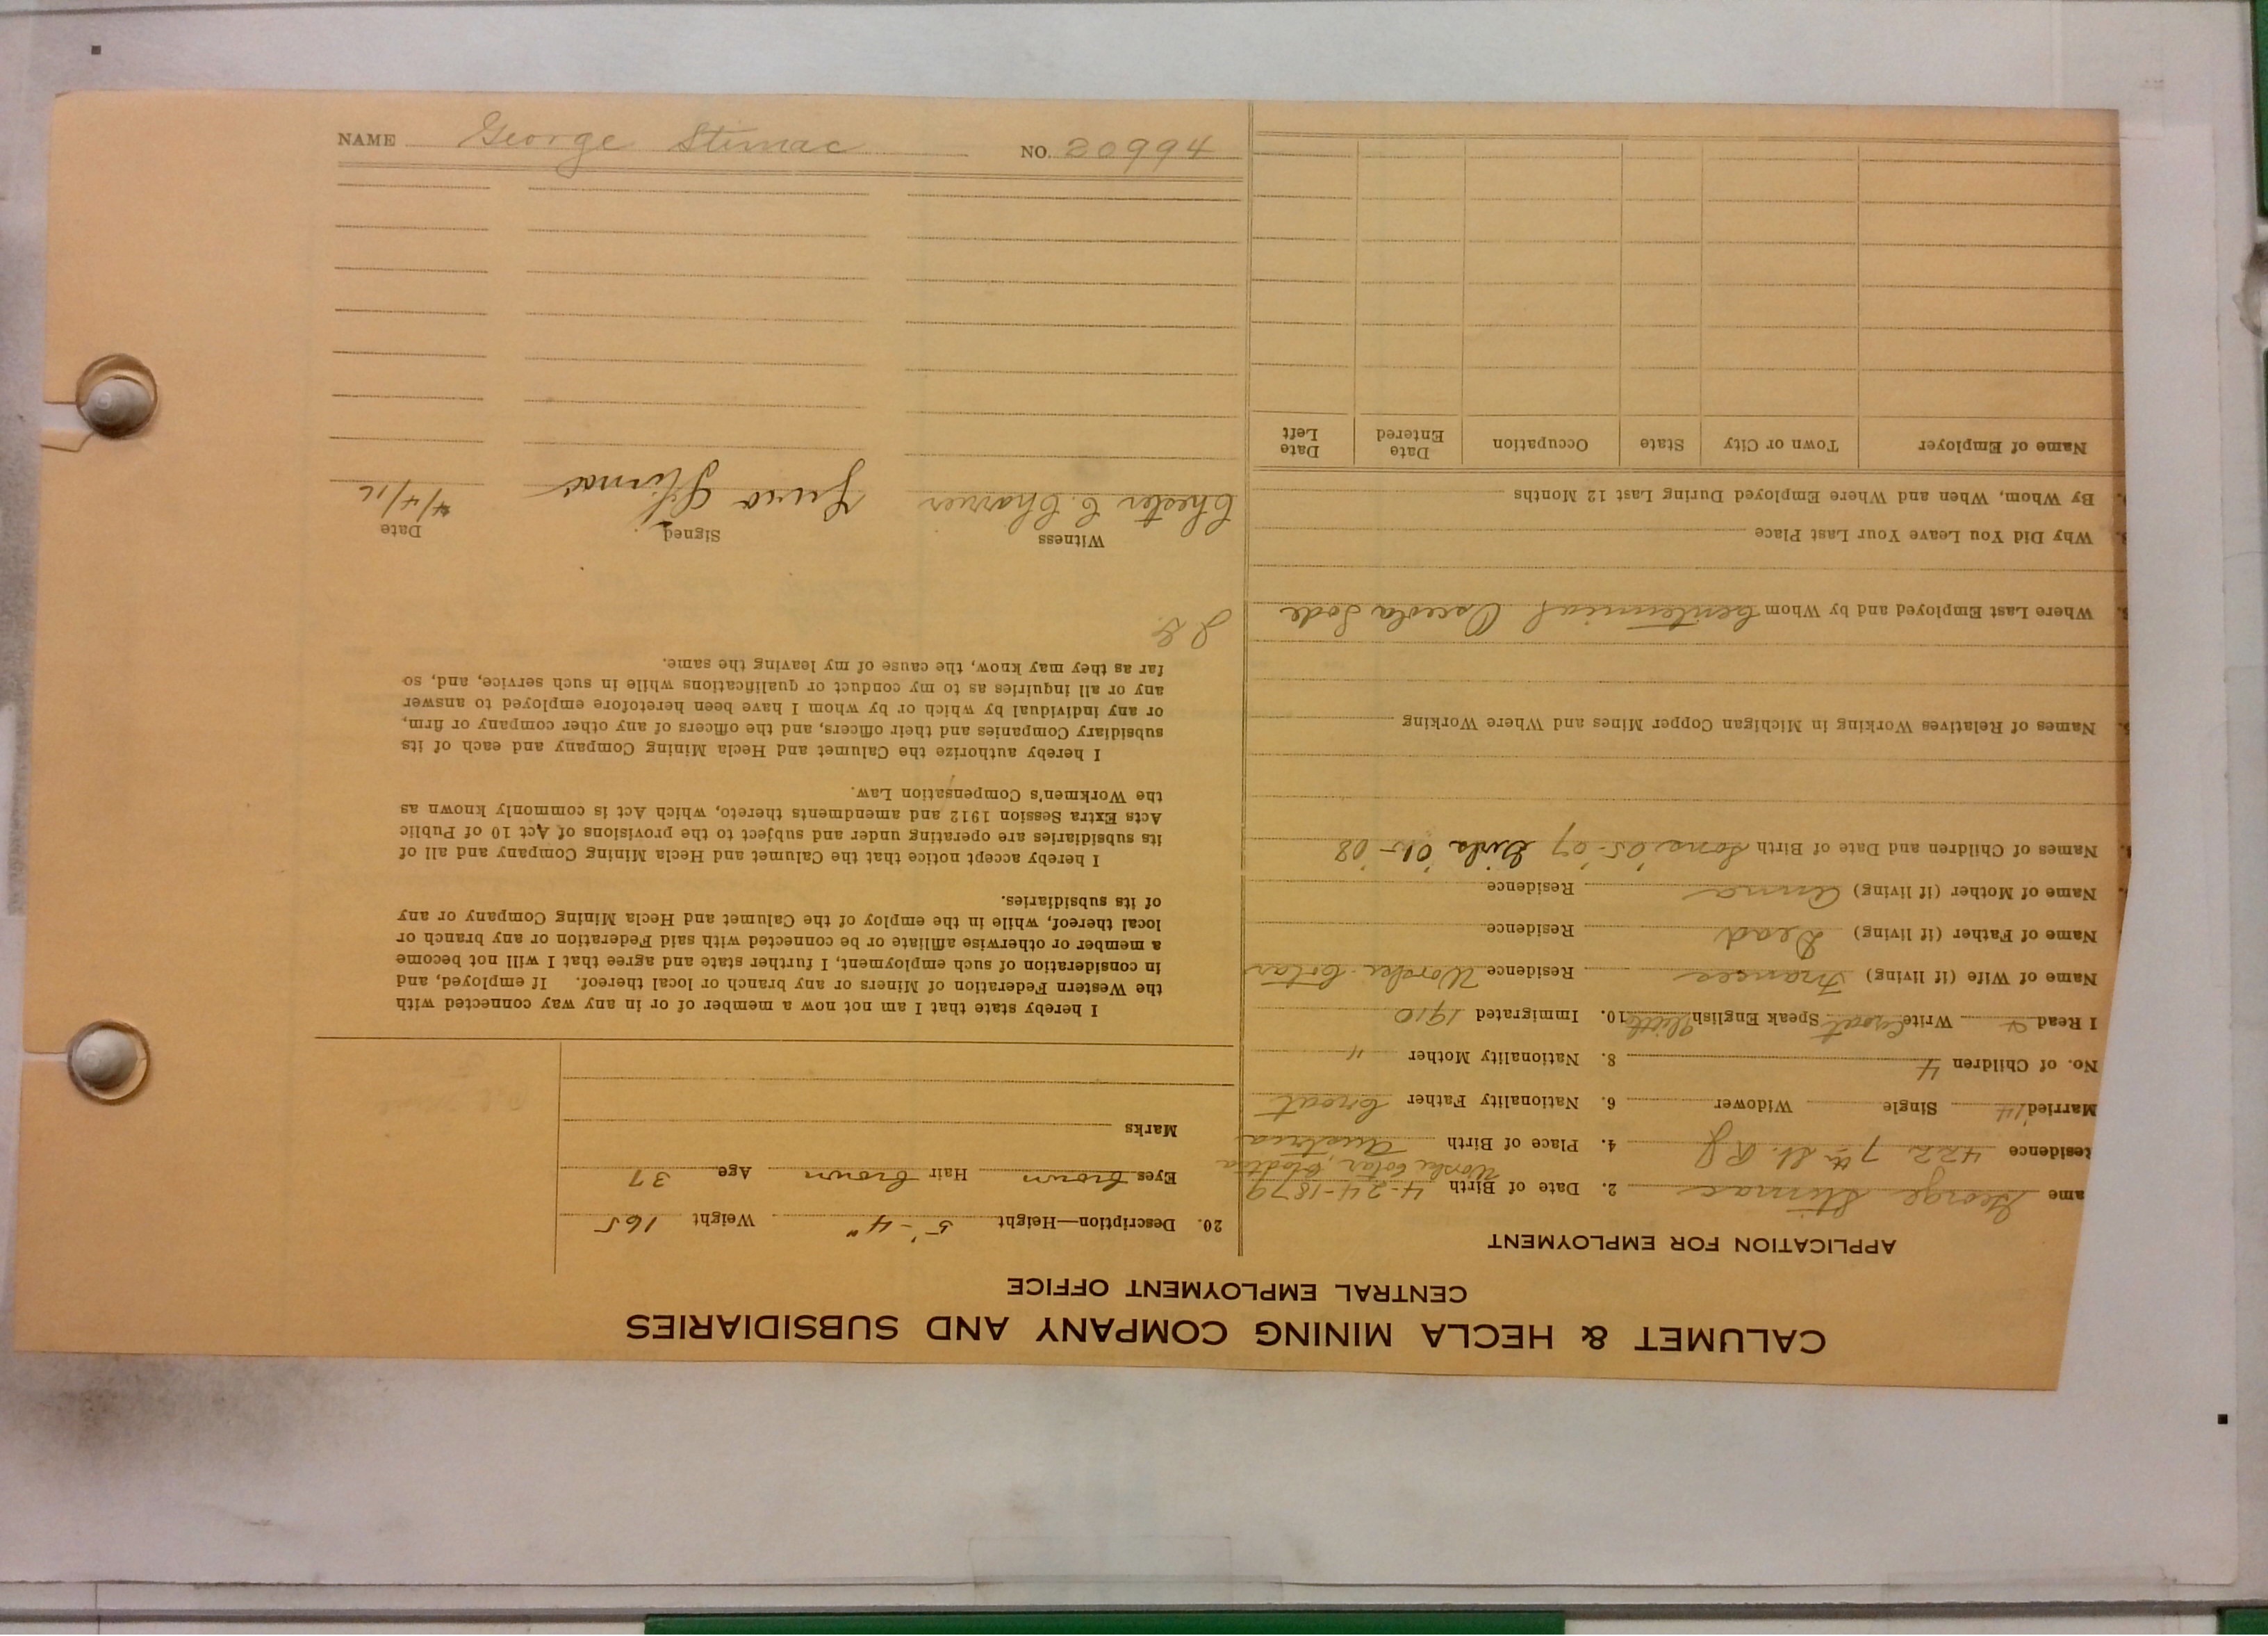 NAME George Stimac NO. 20994
CALUMET & HECLA MINING COMPANY AND SUBSIDIARIES
CENTRAL EMPLOYMENT OFFICE
APPLICATION FOR EMPLOYMENT
ame George Stimac 2. Date of Birth 4-24-1879
Residence 422 7th St. R J 4. Place of Birth Austria
Married '14 Single Widower 6. Nationality Father Croat
No. of Children 4 8. Nationality Mother "
I Read Write Croat Speak English little 10. Immigrated 1910
Name of Wife (if living) Frances Residence
Name of Father (if living) Dead Residence
Name of Mother (if living) Anna Residence
Names of Children and Date of Birth Sons '05-'07 Girls '01-'08
Names of Relatives Working in Michigan Copper Mines and Where Working
Where Last Employed and by Whom Centennial Osceola Lode
Why Did You Leave Your Last Place
By Whom, When and Where Employed During Last 12 Months
Name of Employer Town or City State Occupation Date Entered Date Left
20. Description—Height 5'-4" Weight 165
Eyes brown Hair brown Age 37
Marks
I hereby state that I am not now a member of or in any way connected with
the Western Federation of Miners or any branch or local thereof. If employed, and
in consideration of such employment, I further state and agree that I will not become
a member or otherwise affiliate or be connected with said Federation or any branch or
local thereof, while in the employ of the Calumet and Hecla Mining Company or any
of its subsidiaries.
I hereby accept notice that the Calumet and Hecla Mining Company and all of
its subsidiaries are operating under and subject to the provisions of Act 10 of Public
Acts Extra Session 1912 and amendments thereto, which Act is commonly known as
the Workmen's Compensation Law.
I hereby authorize the Calumet and Hecla Mining Company and each of its
subsidiary Companies and their officers, and the officers of any other company or firm,
or any individual by which or by whom I have been heretofore employed to answer
any or all inquiries as to my conduct or qualifications while in such service, and, so
far as they may know, the cause of my leaving the same.
Witness Signed Date
Chester C. Stimac 4/4/16